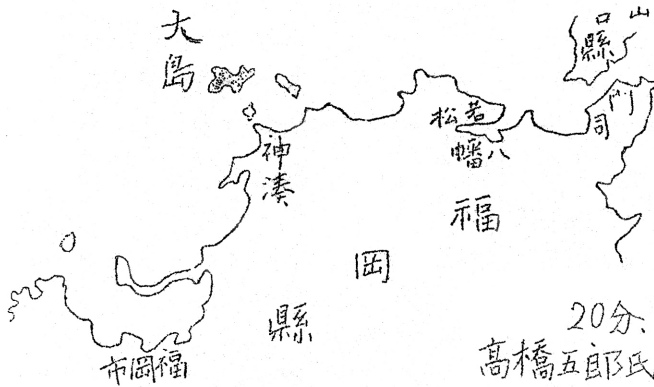 大島
山口縣
門司
若松
八幡
神湊
福岡縣
福岡市
20分、
高橋五郎氏